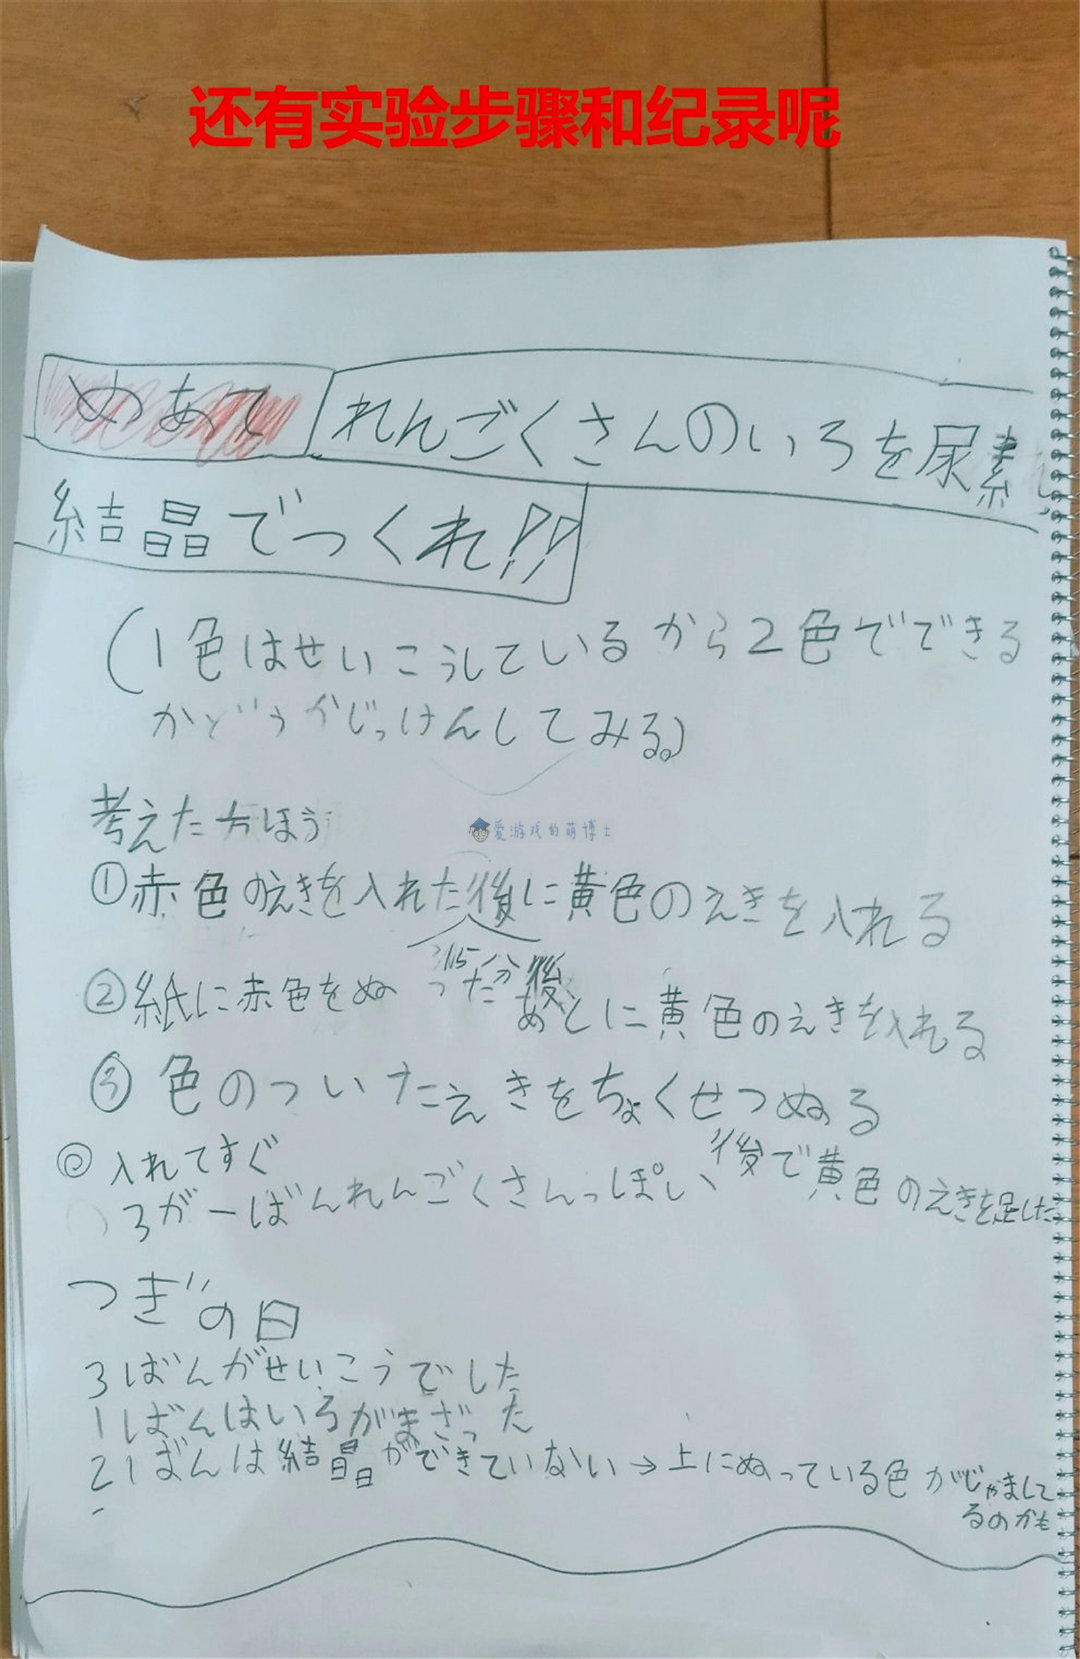 还有实验步骤和纪录呢
めあて れんごくさんのいろを尿素
結晶でつくれ!!
(1色はせいこうしているから2色でできる
かどうかじっけんしてみる。)
考えた方ほう
爱游戏的萌博士
①赤色のえきを入れた後に黄色のえきを入れる
分後
②紙に赤色をぬったあとに黄色のえきを入れる
③色のついたえきをちょくせつぬる
◎入れてすぐ
ろがーばんれんごくさんっぽい、後で黄色のえきを足した
つぎの日
3ばんがせいこうでした
1ばんはいろがまざった
2ばんは結晶ができていない→上にぬっている色がじゃまして
るのかも